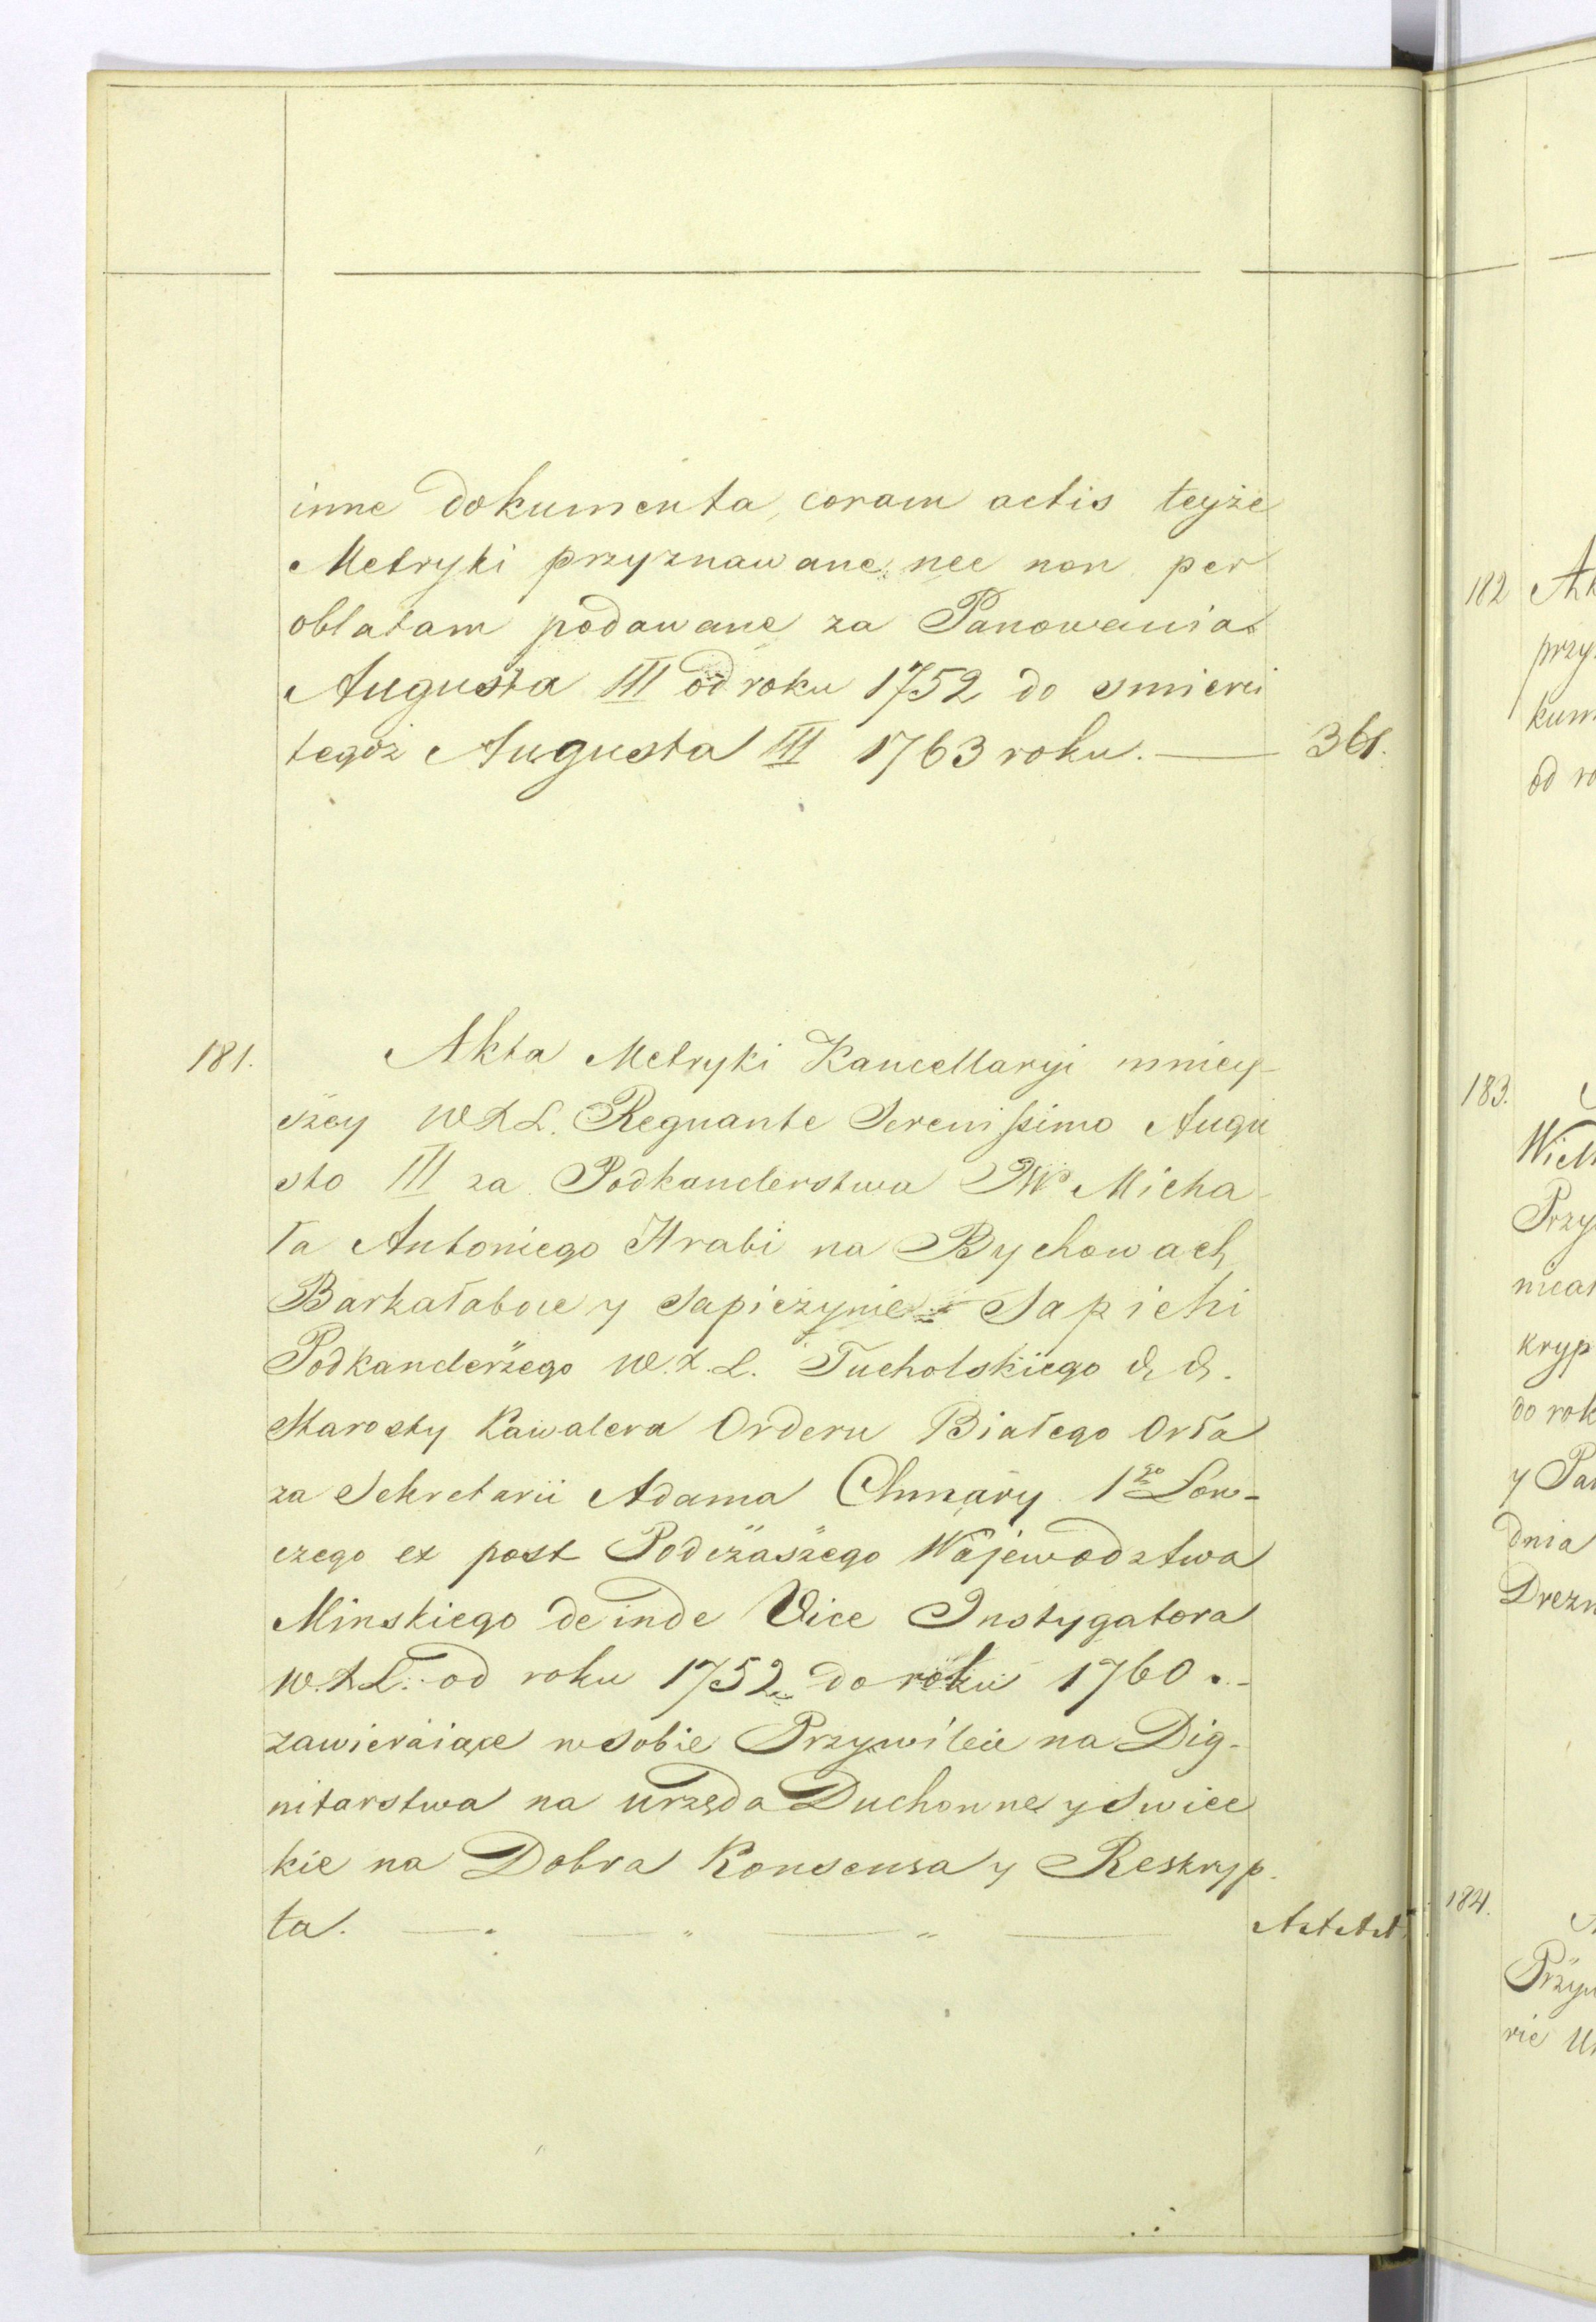 inne dokumenta, coram actis teyże
Metryki przyznawane, nec non per
oblatam podawane za Panowania
Augusta III od roku 1752 do smierci
tegoż Augusta III 1763 roku. — 361.
181. Akta Metryki Kancellaryi mniey-
szey W.X.L. Regnante Serenissimo Augu
sto III za Podkanclerstwa JW Micha-
ła Antoniego Hrabi na Bychowach
Barkałabowie y Sapieżynie Sapiehi
Podkanclerzego W.X.L. Tucholskiego & &.
Starosty Kawalera Orderu Białego Orła
za Sekretarii Adama Chmary 1go Łow-
czego ex post Podczaszego Wojewodztwa
Minskiego deinde Vice Instygatora
W.X.L. od roku 1752 do roku 1760.-
zawieraiące w sobie Przywileie na Dig-
nitarstwa na urzęda Duchowne y Swiec
kie na Dobra Konsensa y Reskryp-
ta. — " — " —
182 Ak
przy
kum
od ro
183.
Wielk
Przy
mear
kryp
do rok
y Pa
dnia
Drezn
184.
Przyw
rie